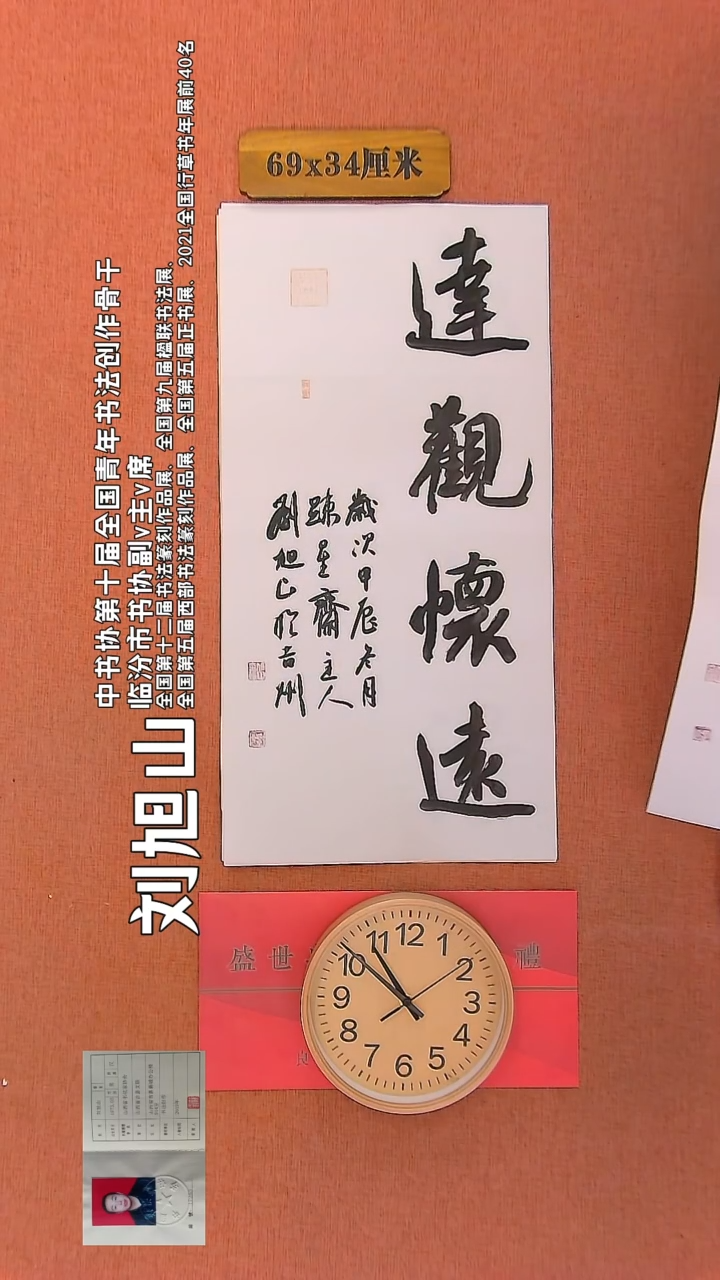 69x34厘米
達觀懷遠
歲次甲辰冬月
疎星齋主人
劉旭山於吉州
中书协第十届全国青年书法创作骨干
临汾市书协副v主v席
全国第十二届书法篆刻作品展、全国第九届楹联书法展、
全国第五届西部书法篆刻作品展、全国第五届正书展、2021全国行草书年展前40名
刘旭山
盛世
禮
12
1
2
3
4
5
6
7
8
9
10
11